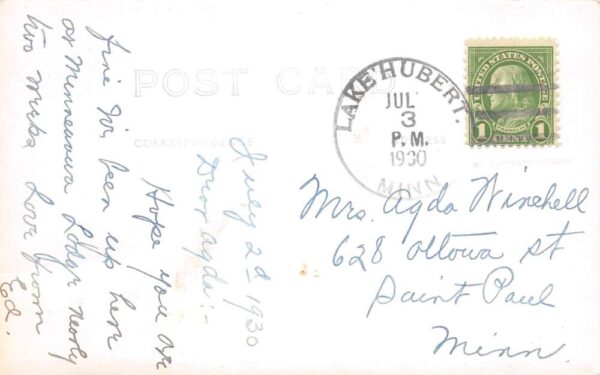 POST CARD
CORRESPONDENCE
July 2d 1930
Dear Agda:-
Hope you are
fine Iv, been up here
at Minnewawa Lodge nearly
two weeks Love from
Ed.
LAKE HUBERT.
JUL
3
P.M.
1930
MINN
UNITED STATES POSTAGE
FRANKLIN
1 CENT 1
Mrs. Agda Winchell
628 Ottowa st
Saint Paul
Minn.